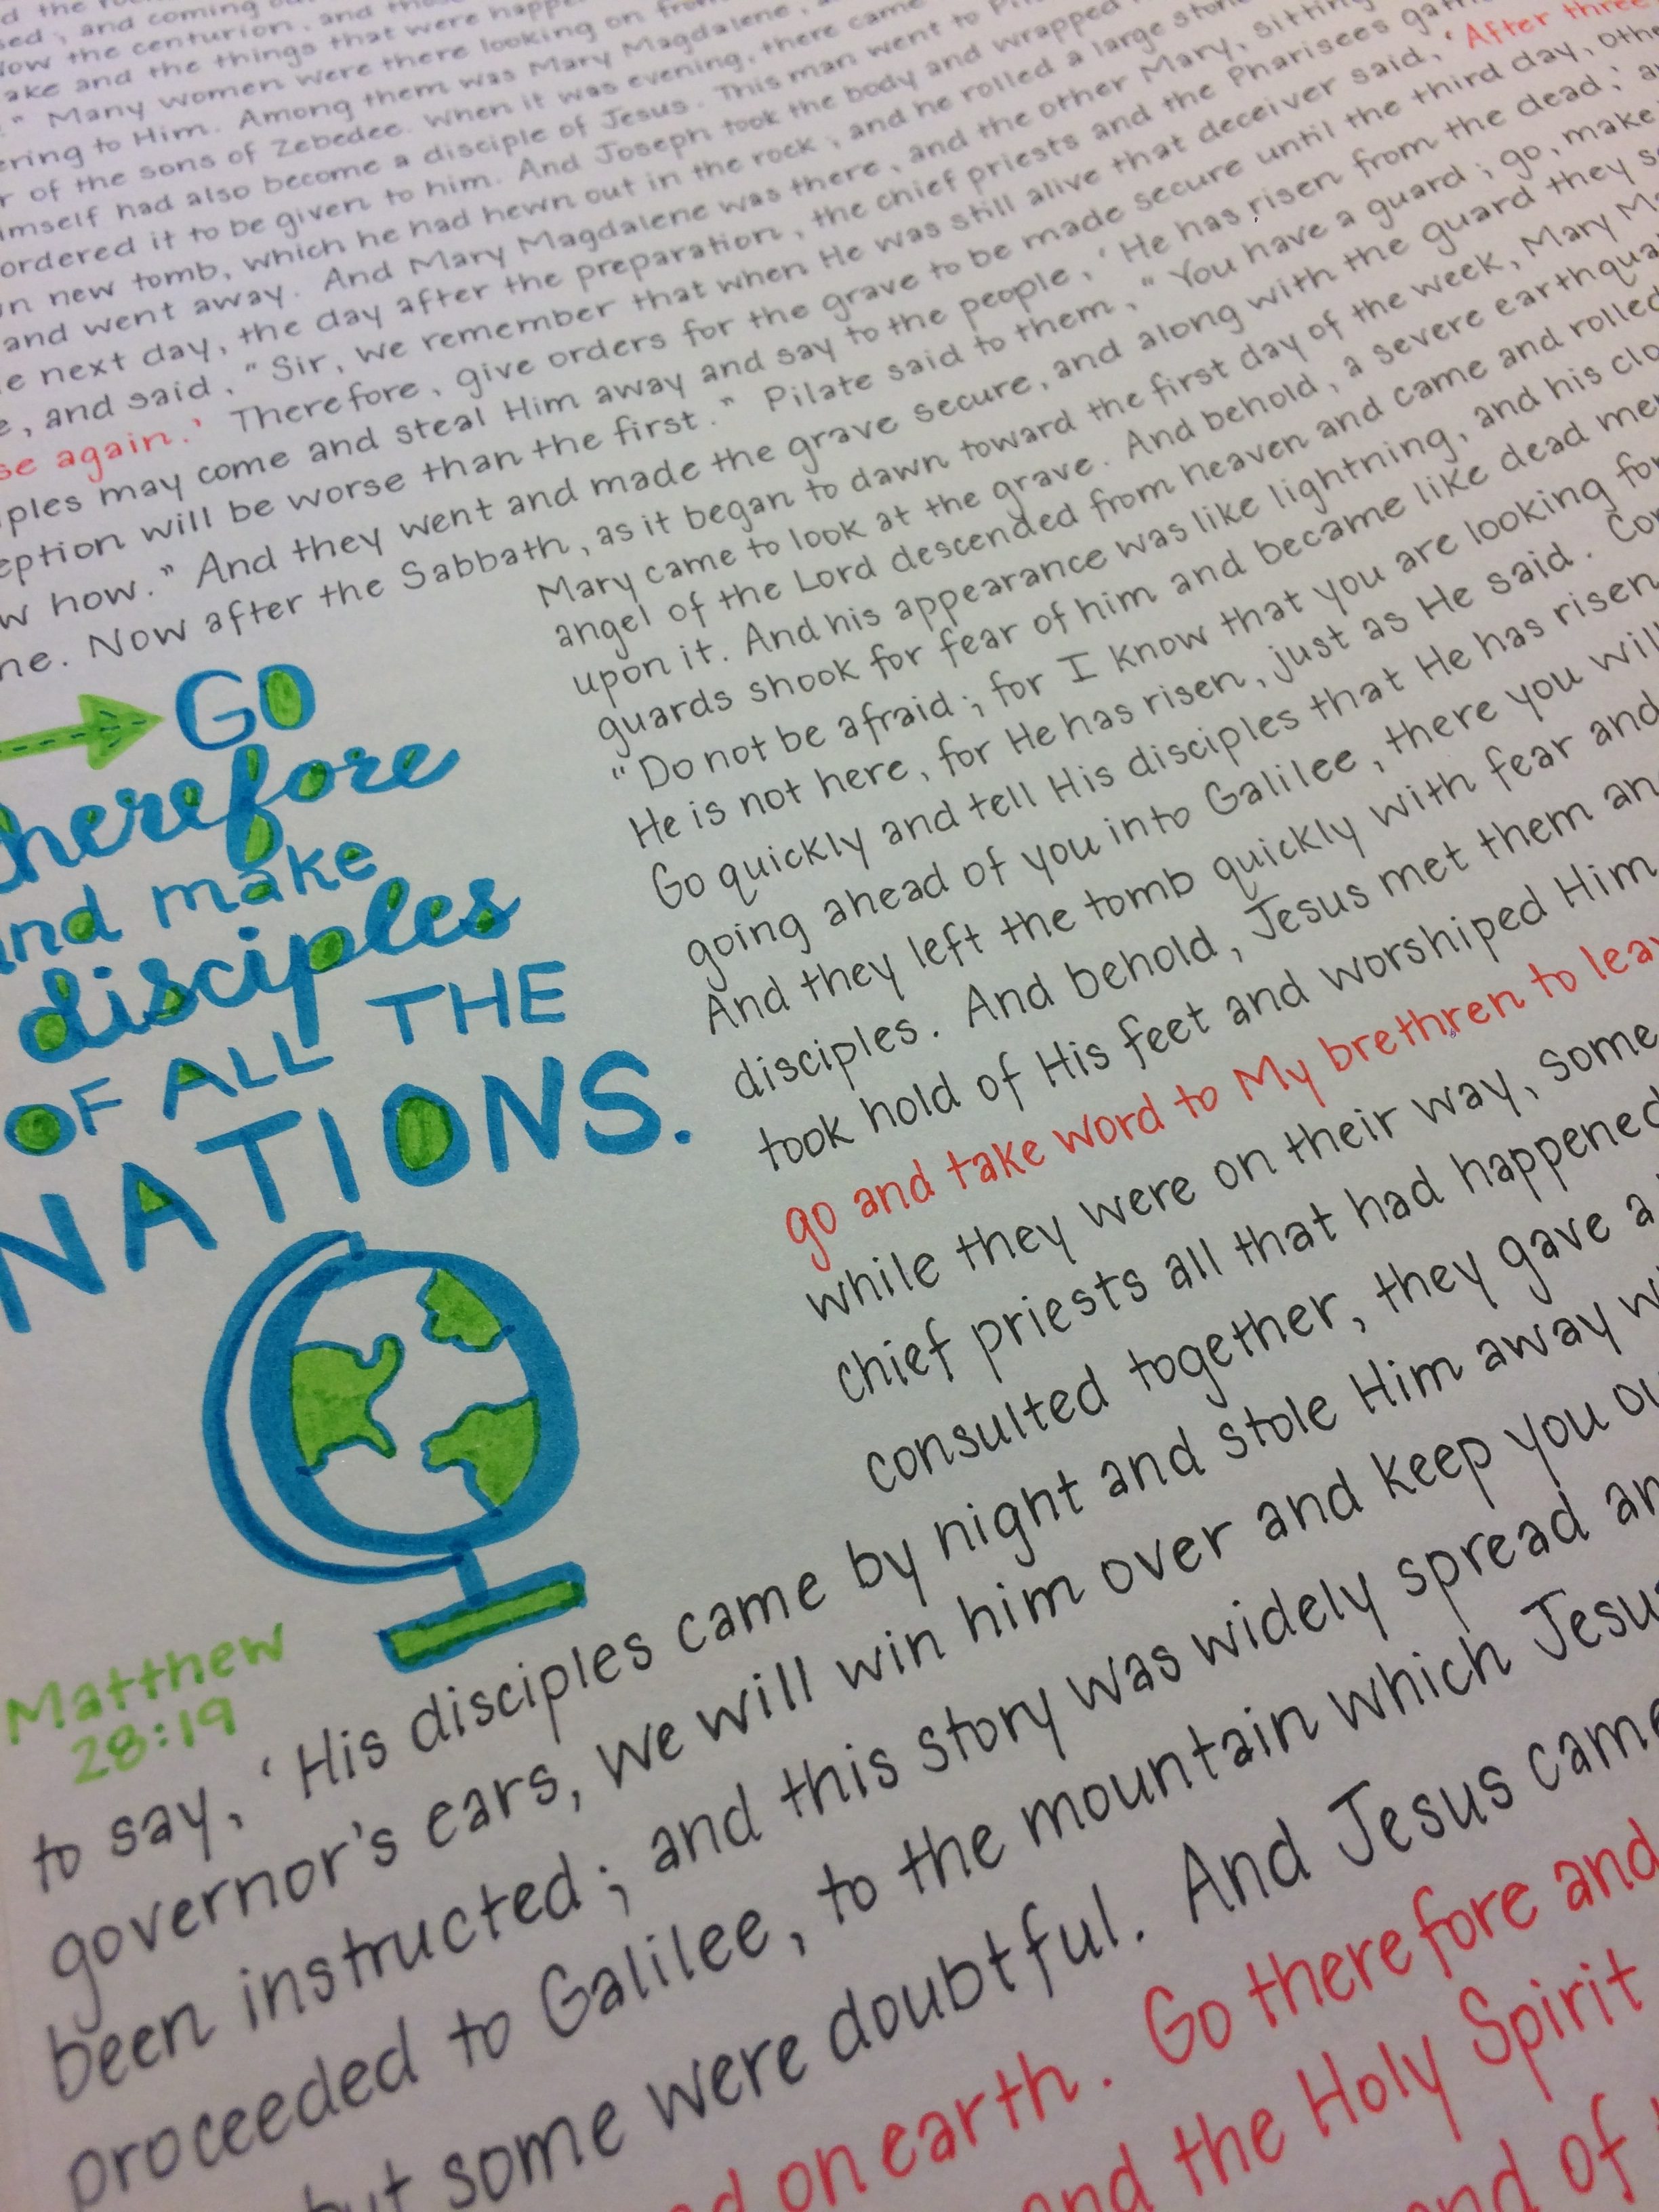 sed ; and coming
Now the centurion, and
ake and the things that were
." Many women were there looking on from
ering to Him. Among them was Mary Magdalene,
r of the sons of Zebedee. When it was evening, there came
imself had also become a disciple of Jesus. This man went to
ordered it to be given to him. And Joseph took the body and wrapped
n new tomb, which he had hewn out in the rock ; and he rolled a large stone
and went away. And Mary Magdalene was there, and the other Mary, sitting
e next day, the day after the preparation, the chief priests and the Pharisees
e, and said, "Sir, we remember that when He was still alive that deceiver said, 'After three
se again.' Therefore, give orders for the grave to be made secure until the third day,
ples may come and steal Him away and say to the people, 'He has risen from the dead ;'
eption will be worse than the first." Pilate said to them, "You have a guard ; go, make
w how." And they went and made the grave secure, and along with the guard they
ne. Now after the Sabbath, as it began to dawn toward the first day of the week, Mary
Mary came to look at the grave. And behold, a severe
angel of the Lord descended from heaven and came and rolled
upon it. And his appearance was like lightning, and his
guards shook for fear of him and became like dead men
"Do not be afraid ; for I know that you are looking for
He is not here, for He has risen, just as He said.
Go quickly and tell His disciples that He has risen
going ahead of you into Galilee, there you will
And they left the tomb quickly with fear and
disciples. And behold, Jesus met them an
took hold of His feet and worshiped Him
go and take word to My brethren to lea
while they were on their way, some
chief priests all that had happened
consulted together, they gave a
GO
therefore
and make
disciples
OF ALL THE
NATIONS.
Matthew
28:19
to say, 'His disciples came by night and stole Him away
governor's ears, we will win him over and keep you
been instructed ; and this story was widely spread an
proceeded to Galilee, to the mountain which Jesu
but some were doubtful. And Jesus came
on earth. Go therefore and
and the Holy Spirit
of